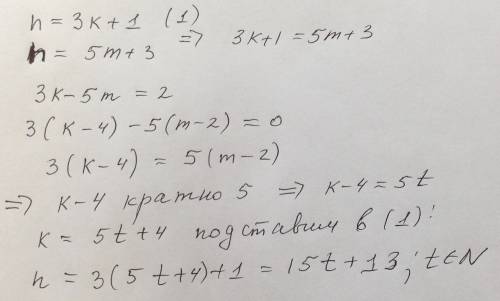 n = 3k + 1 (1)
n = 5m + 3 => 3k + 1 = 5m + 3
3k - 5m = 2
3(k - 4) - 5(m - 2) = 0
3(k - 4) = 5(m - 2)
=> k - 4 кратно 5 => k - 4 = 5t
k = 5t + 4 подставим в (1):
n = 3(5t + 4) + 1 = 15t + 13; t ∈ N